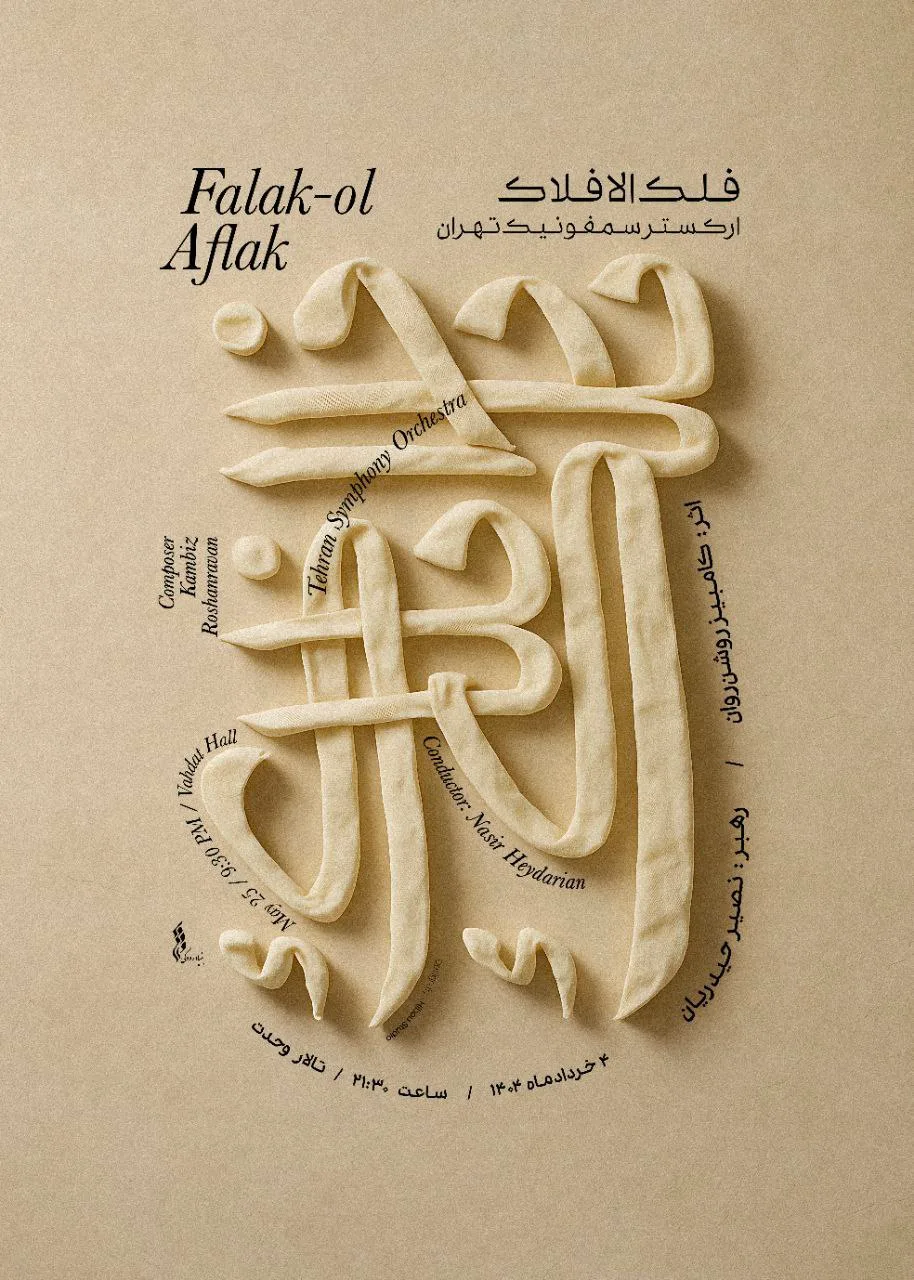 Falak-ol
Aflak
فلک‌الافلاک
ارکستر سمفونیک تهران
فلک الافلاک
Tehran Symphony Orchestra
Composer
Kambiz
Roshanravan
اثر: کامبیز روشن‌روان / رهبر: نصیر حیدریان
Conductor: Nasir Heydarian
May 25 / 9:30 PM / Vahdat Hall
بنیاد رودکی
۴ خردادماه ۱۴۰۴ / ساعت ۲۱:۳۰ / تالار وحدت